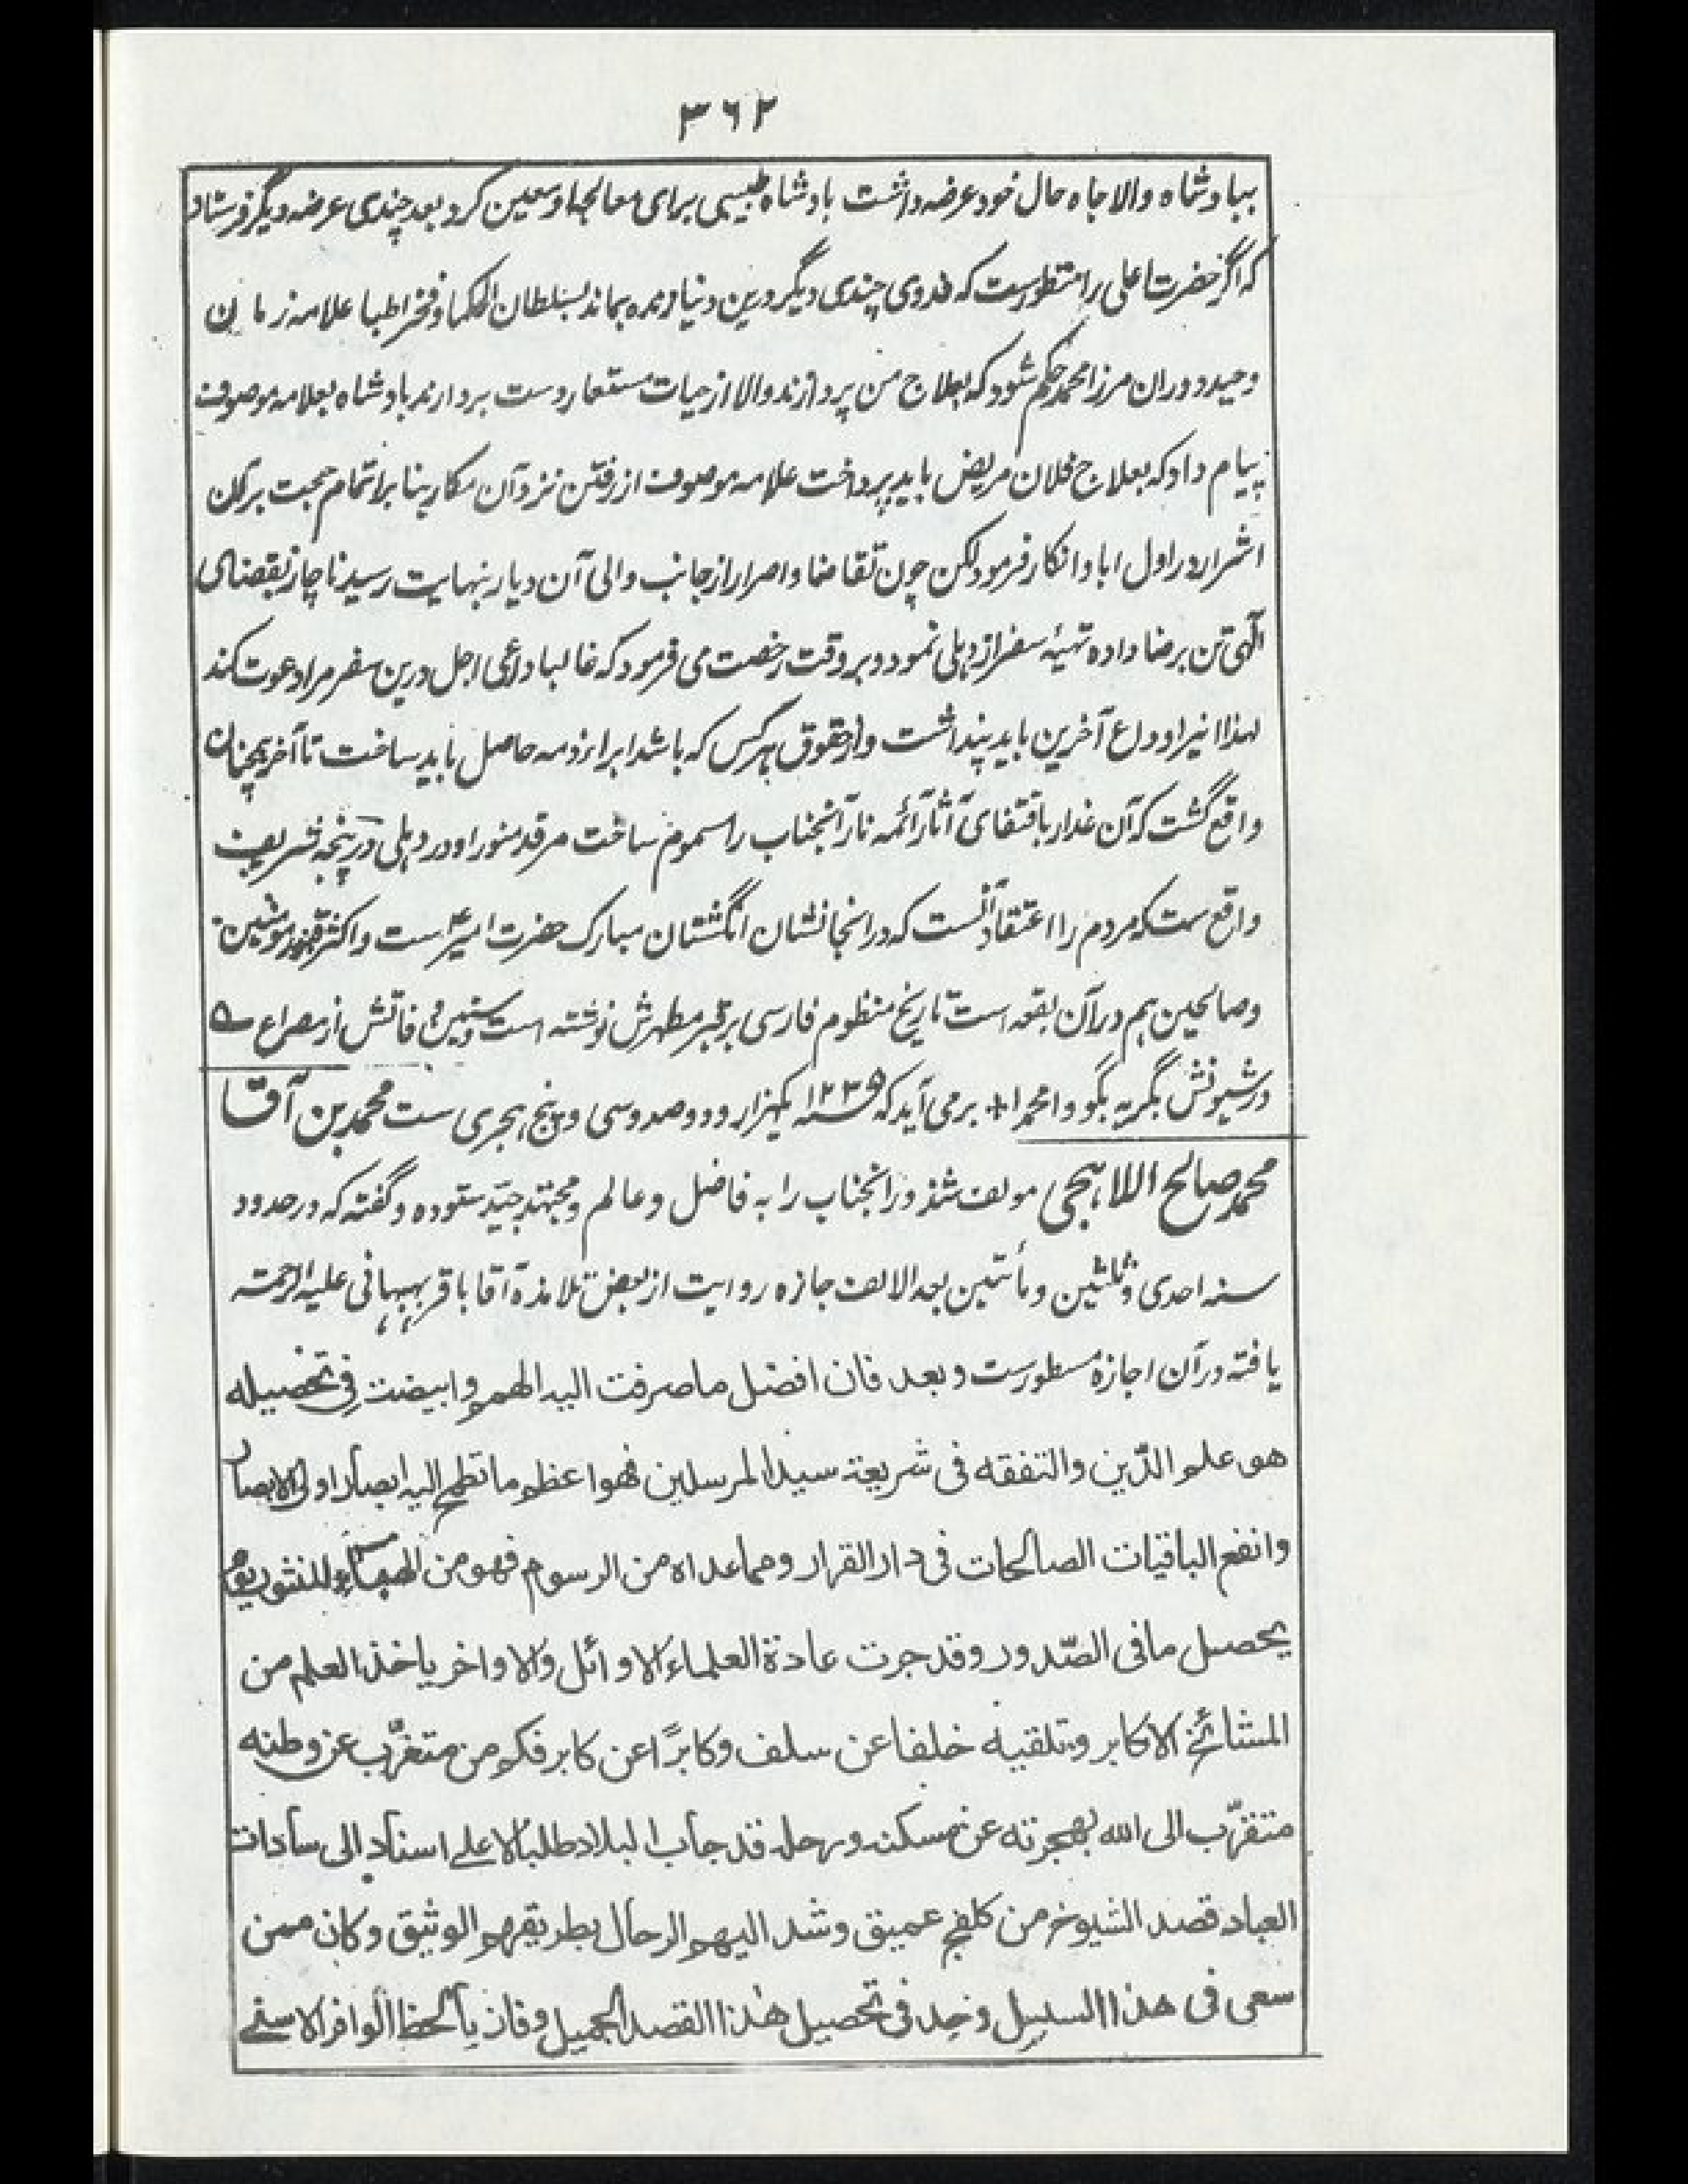 ۳۶۲
بپادشاه والا جاه حال خود عرضه داشت بادشاه طبیبی برای معالجه او معین کرد بعد چندی عرضه دیگر فرستاد
که اگر حضرت اعلی را منظورست که فدوی چندی دیگر درین دنیا زنده بماند بسلطان الحکما و فخر اطبا علامه زمان
وحید دوران مرزا محمد حکم شود که بعلاج من پردازند والا از حیات مستعار دست بردارند بادشاه بعلامه موصوف
پیام داد که بعلاج فلان مریض باید پرداخت علامه موصوف از رفتن نزد آن مکار بنا بر اتمام حجت بر آن
اشرار در اول ابا و انکار فرمود لکن چون تقاضا و اصرار از جانب والی آن دیار بنهایت رسید ناچار بقضای
الهی تن برضا داده تهیهٔ سفر از دهلی نمود و بر وقت رخصت می فرمود که غالبا داعی اجل درین سفر مرا دعوت کند
لهذا این را وداع آخرین باید پنداشت و از حقوق هر کس که باشد ابراء ذمه حاصل باید ساخت تا آخر همچنان
واقع گشت که آن غدار باقتفای آثار ائمه نار آنجناب را مسموم ساخت مرقد منور او در دهلی در پنجه شریف
واقع ست که مردم را اعتقاد آنست که در انجا نشان انگشتان مبارک حضرت امیر ست و اکثر قبور مومنین
و صالحین هم در آن بقعه است تاریخ منظوم فارسی بر قبر مطهرش نوشته است و سنین وفاتش از مصراع ے
در شیونش بگریه بگو وا محمدا + برمی آید که ۱۲۳۵ یکهزار و دو صد و سی و پنج هجری ست محمد بن آقا
محمد صالح اللاهجی مولف شذور آنجناب را به فاضل و عالم و مجتهد جید ستوده و گفته که در حدود
سنه احدی و ثلثین و مأتین بعد الالف اجازه روایت از بعض تلامذهٔ آقا باقر بهبهانی علیه الرحمة
یافته در آن اجازه مسطورست وبعد فان افضل ما صرفت الیه الهمم وابیضت فی تحصیله
هو علم الدّین والتفقه فی شریعة سید المرسلین فهو اعظم ما تطمح الیه ابصار اولی الابصار
وانفع الباقیات الصالحات فی دار القرار وما عداه من الرسوم فهو من الهباء المنثور یوم
یحصل ما فی الصّدور وقد جرت عادة العلماء الاوائل والاواخر باخذ العلم من
المشائخ الاکابر وتلقیه خلفا عن سلف وکابرًا عن کابر فکم من متغرّب عن وطنه
متقرّب الی الله بهجرته عن مسکنه ورحله قد جاب البلاد طلبًا لاعلے اسناد الی سادات
العباد قصد الشیوخ من کل فج عمیق وشد الیهم الرحال بطریقهم الوثیق وکان ممن
سعی فی هذا السبیل وجد فی تحصیل هذا القصد الجمیل وفاز بالحظ الوافر الاسنے